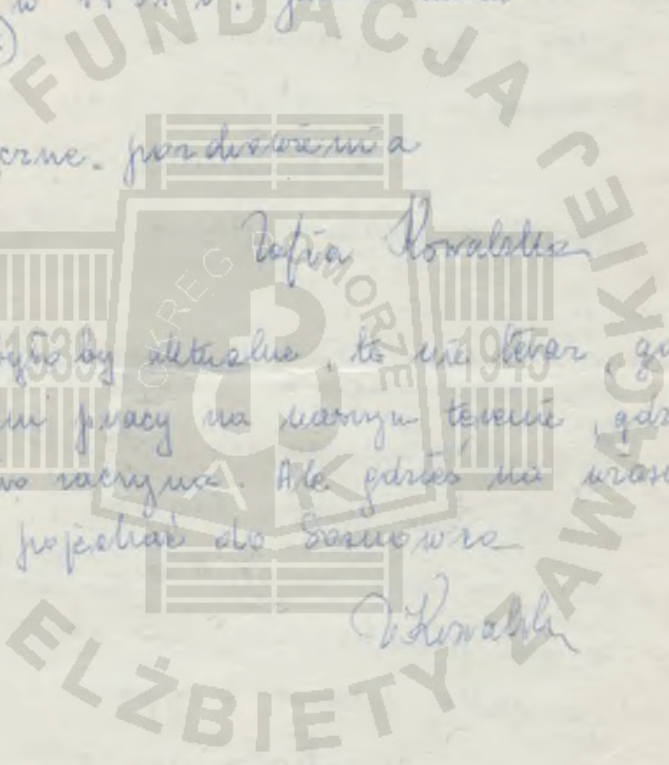 czne. pozdrowienia
Zofia Kowalska
byłoby aktualne, to nie teraz, gd
mi pracy na naszym terenie, gdz
wo zaczyna. Ale gdzieś na wiosn
pojechać do Sosnowca
ZKowalska
FUNDACJA JEN
ELŻBIETY ZAWACKIEJ
OKRĘG POMORZE
AK
1939
1945